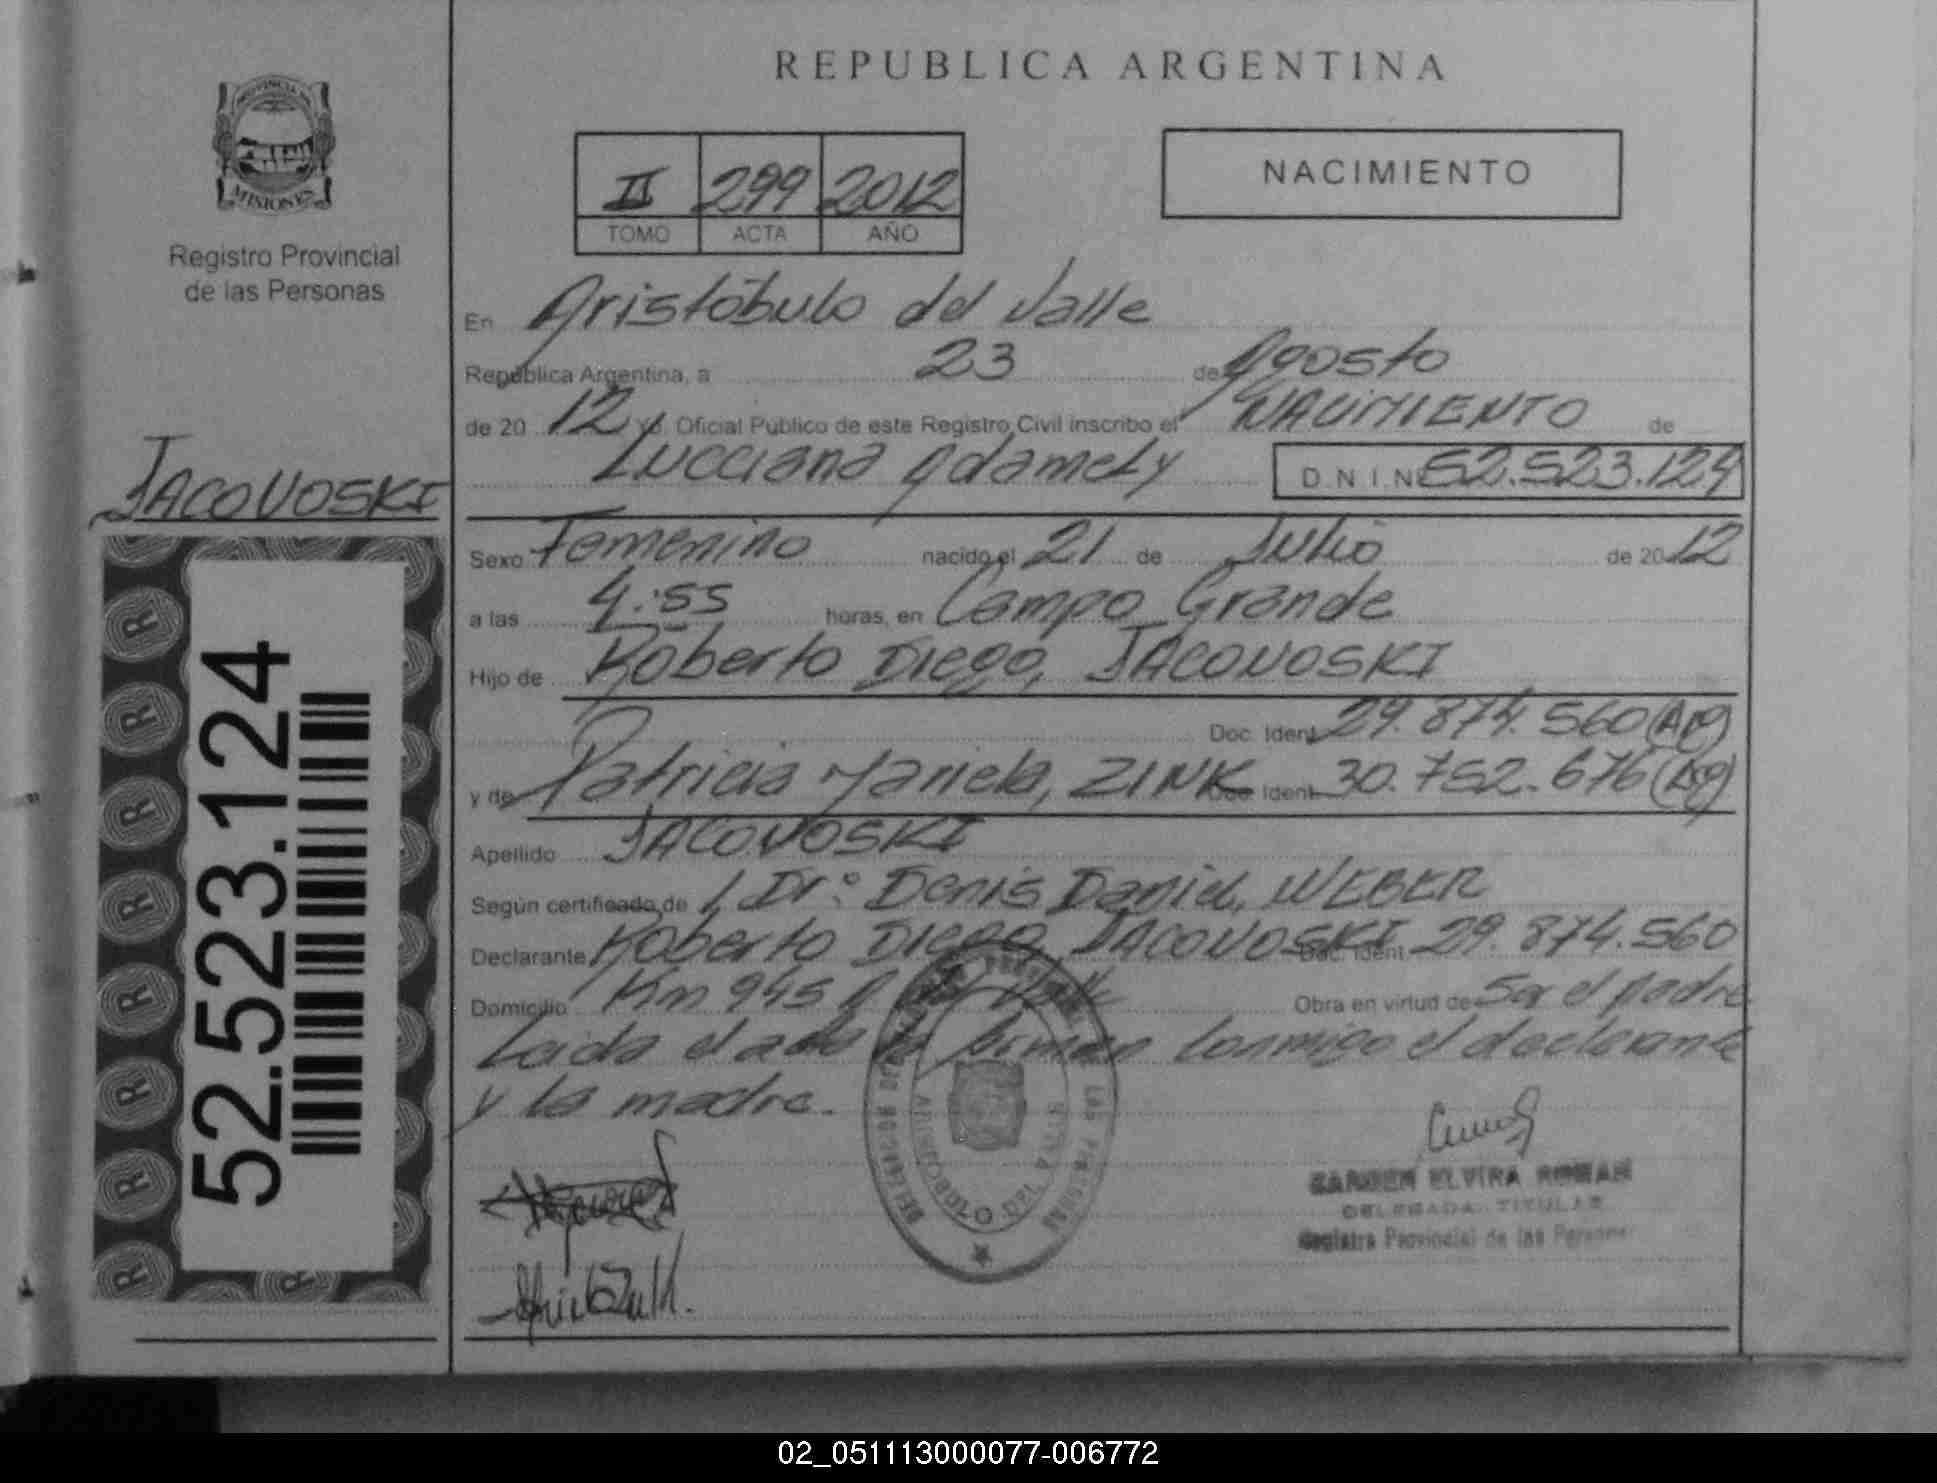 REPUBLICA ARGENTINA
PROVINCIA DE
MISIONES
Registro Provincial
de las Personas
II 299 2012
TOMO ACTA AÑO
NACIMIENTO
En Aristóbulo del Valle
República Argentina, a 23 de Agosto
de 20 12 Yo, Oficial Público de este Registro Civil inscribo el NACIMIENTO de
Lucciana Adamely D.N.I. Nº 52.523.124
JACOVOSKI
Sexo Femenino nacido el 21 de Julio de 20 12
a las 4:55 horas, en Campo Grande
Hijo de Roberto Diego, JACOVOSKI
Doc. Ident. 29.874.560 (Arg)
y de Patricia Mariela, ZINK Doc. Ident. 30.752.676 (Arg)
Apellido JACOVOSKI
Según certificado de Dr: Denis Daniel, WEBER
Declarante Roberto Diego, JACOVOSKI Doc. Ident. 29.874.560
Domicilio Km 945 Obra en virtud de Ser el padre
Leida el acta la firman conmigo el declarante
y la madre.
52.523.124
CARMEN ELVIRA ROMAN
DELEGADA TITULAR
Registro Provincial de las Personas
02_051113000077-006772